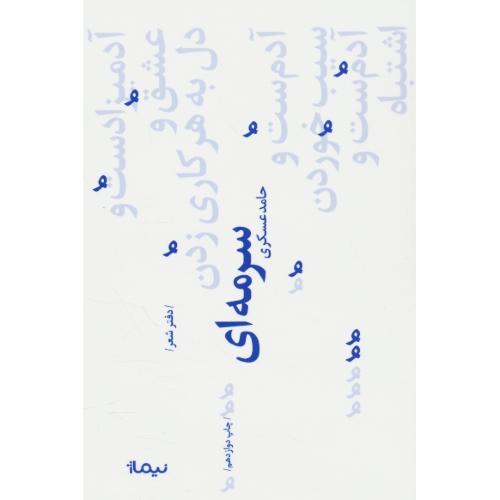 آدمیزادست و
عشق و
دل به هر کاری زدن
آدم‌ست و
سیب خوردن
آدم‌ست و
اشتباه
سرمه‌ای
حامد عسکری
/ دفتر شعر /
/ چاپ دوازدهم /
نیماژ